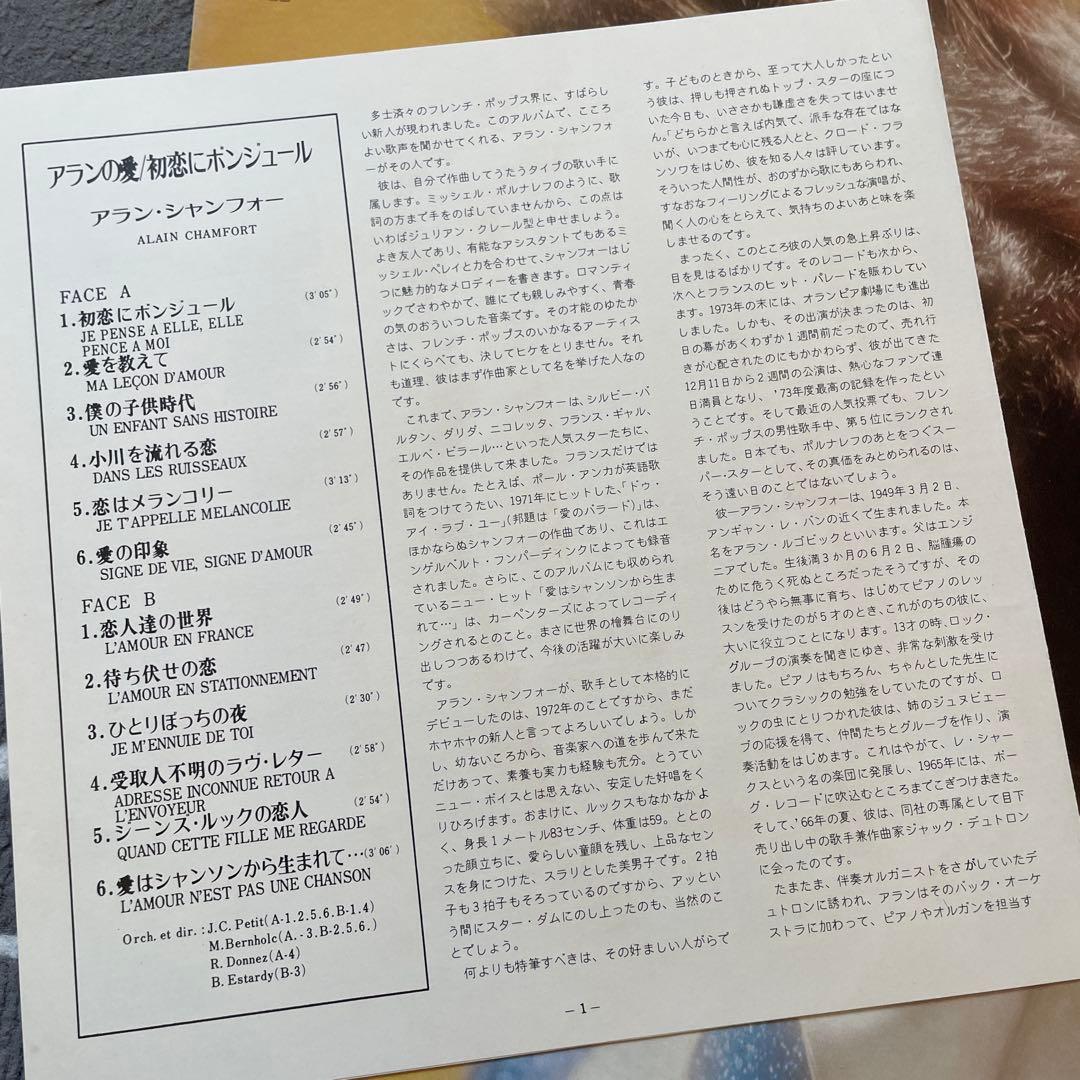 アランの愛/初恋にボンジュール
アラン・シャンフォー
ALAIN CHAMFORT
FACE A
1.初恋にボンジュール (3′05″)
JE PENSE A ELLE, ELLE
PENCE A MOI
2.愛を教えて (2′54″)
MA LEÇON D'AMOUR
3.僕の子供時代 (2′56″)
UN ENFANT SANS HISTOIRE
4.小川を流れる恋 (2′57″)
DANS LES RUISSEAUX
5.恋はメランコリー (3′13″)
JE T'APPELLE MELANCOLIE
6.愛の印象 (2′45″)
SIGNE DE VIE, SIGNE D'AMOUR
FACE B
1.恋人達の世界 (2′49″)
L'AMOUR EN FRANCE
2.待ち伏せの恋 (2′47)
L'AMOUR EN STATIONNEMENT
3.ひとりぼっちの夜 (2′30″)
JE M'ENNUIE DE TOI
4.受取人不明のラヴ・レター (2′58″)
ADRESSE INCONNUE RETOUR A
L'ENVOYEUR
5.シーンズ・ルックの恋人 (2′54″)
QUAND CETTE FILLE ME REGARDE
6.愛はシャンソンから生まれて…(3′06″)
L'AMOUR N'EST PAS UNE CHANSON
Orch. et dir. : J.C. Petit(A-1.2.5.6.B-1.4)
M.Bernholc(A.-3.B-2.5.6.)
R. Donnez(A-4)
B. Estardy(B-3)
多士済々のフレンチ・ポップス界に、すばらし
い新人が現われました。このアルバムで、こころ
よい歌声を聞かせてくれる、アラン・シャンフォ
ーがその人です。
彼は、自分で作曲してうたうタイプの歌い手に
属します。ミッシェル・ポルナレフのように、歌
詞の方まで手をのばしていませんから、この点は
いわばジュリアン・クレール型と申せましょう。
よき友人であり、有能なアシスタントでもあるミ
ッシェル・ペレイと力を合わせて、シャンフォーはじ
つに魅力的なメロディーを書きます。ロマンティ
ックでさわやかで、誰にでも親しみやすく、青春
の気のおういつした音楽です。その才能のゆたか
さは、フレンチ・ポップスのいかなるアーティス
トにくらべても、決してヒケをとりません。それ
も道理、彼はまず作曲家として名を挙げた人なの
です。
これまで、アラン・シャンフォーは、シルビー・バ
ルタン、ダリダ、ニコレッタ、フランス・ギャル、
エルベ・ビラール…といった人気スターたちに、
その作品を提供して来ました。フランスだけでは
ありません。たとえば、ポール・アンカが英語歌
詞をつけてうたい、1971年にヒットした、「ドゥ・
アイ・ラブ・ユー」(邦題は「愛のバラード」)は、
ほかならぬシャンフォーの作曲であり、これはエ
ンゲルベルト・フンパーディンクによっても録音
されました。さらに、このアルバムにも収められ
ているニュー・ヒット「愛はシャンソンから生ま
れて…」は、カーペンターズによってレコーディ
ングされるとのこと。まさに世界の檜舞台にのり
出しつつあるわけで、今後の活躍が大いに楽しみ
です。
アラン・シャンフォーが、歌手として本格的に
デビューしたのは、1972年のことですから、まだ
ホヤホヤの新人と言ってよろしいでしょう。しか
し、幼ないころから、音楽家への道を歩んで来た
だけあって、素養も実力も経験も充分。とうてい
ニュー・ボイスとは思えない、安定した好唱をく
りひろげます。おまけに、ルックスもなかなかよ
く、身長1メートル83センチ、体重は59。ととの
った顔立ちに、愛らしい童顔を残し、上品なセン
スを身につけた、スラリとした美男子です。2拍
子も3拍子もそろっているのですから、アッとい
う間にスター・ダムにのし上ったのも、当然のこ
とでしょう。
何よりも特筆すべきは、その好ましい人がらで
す。子どものときから、至って大人しかったとい
う彼は、押しも押されぬトップ・スターの座につ
いた今日も、いささかも謙虚さを失ってはいませ
ん。「どちらかと言えば内気で、派手な存在ではな
いが、いつまでも心に残る人とと、クロード・フラ
ンソワをはじめ、彼を知る人々は評しています。
そういった人間性が、おのずから歌にもあらわれ、
すなおなフィーリングによるフレッシュな演唱が、
聞く人の心をとらえて、気持ちのよいあと味を楽
しませるのです。
まったく、このところ彼の人気の急上昇ぶりは、
目を見はるばかりです。そのレコードも次から、
次へとフランスのヒット・パレードを賑わしてい
ます。1973年の末には、オランピア劇場にも進出
しました。しかも、その出演が決まったのは、初
日の幕があくわずか1週間前だったので、売れ行
きが心配されたのにもかかわらず、彼が出てきた
12月11日から2週間の公演は、熱心なファンで連
日満員となり、'73年度最高の記録を作ったとい
うことです。そして最近の人気投票でも、フレン
チ・ポップスの男性歌手中、第5位にランクされ
ました。日本でも、ポルナレフのあとをつぐスー
パー・スターとして、その真価をみとめられるのは、
そう遠い日のことではないでしょう。
彼―アラン・シャンフォーは、1949年3月2日、
アンギャン・レ・バンの近くで生まれました。本
名をアラン・ルゴビックといいます。父はエンジ
ニアでした。生後満3か月の6月2日、脳腫瘍の
ために危うく死ぬところだったそうですが、その
後はどうやら無事に育ち、はじめてピアノのレッ
スンを受けたのが5才のとき、これがのちの彼に、
大いに役立つことになります。13才の時、ロック・
グループの演奏を聞きにゆき、非常な刺激を受け
ました。ピアノはもちろん、ちゃんとした先生に
ついてクラシックの勉強をしていたのですが、ロ
ックの虫にとりつかれた彼は、姉のジュヌビエー
ブの応援を得て、仲間たちとグループを作り、演
奏活動をはじめます。これはやがて、レ・シャー
クスという名の楽団に発展し、1965年には、ボー
グ・レコードに吹込むところまでこぎつけました。
そして、'66年の夏、彼は、同社の専属として目下
売り出し中の歌手兼作曲家ジャック・デュトロン
に会ったのです。
たまたま、伴奏オルガニストをさがしていたデ
ュトロンに誘われ、アランはそのバック・オーケ
ストラに加わって、ピアノやオルガンを担当す
－1－